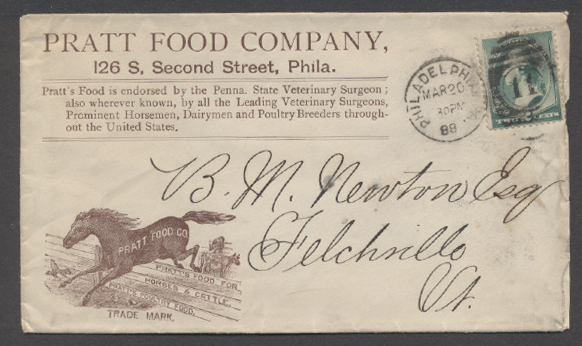 PRATT FOOD COMPANY,
126 S, Second Street, Phila.
Pratt's Food is endorsed by the Penna. State Veterinary Surgeon;
also wherever known, by all the Leading Veterinary Surgeons,
Prominent Horsemen, Dairymen and Poultry Breeders through-
out the United States.
PHILADELPHIA
MAR 20
30PM
88
TWO CENTS
B. M. Newton Esq
Felchville
Vt.
PRATT FOOD CO.
PRATT'S FOOD FOR
HORSES & CATTLE.
PRATT'S POULTRY FOOD.
TRADE MARK.